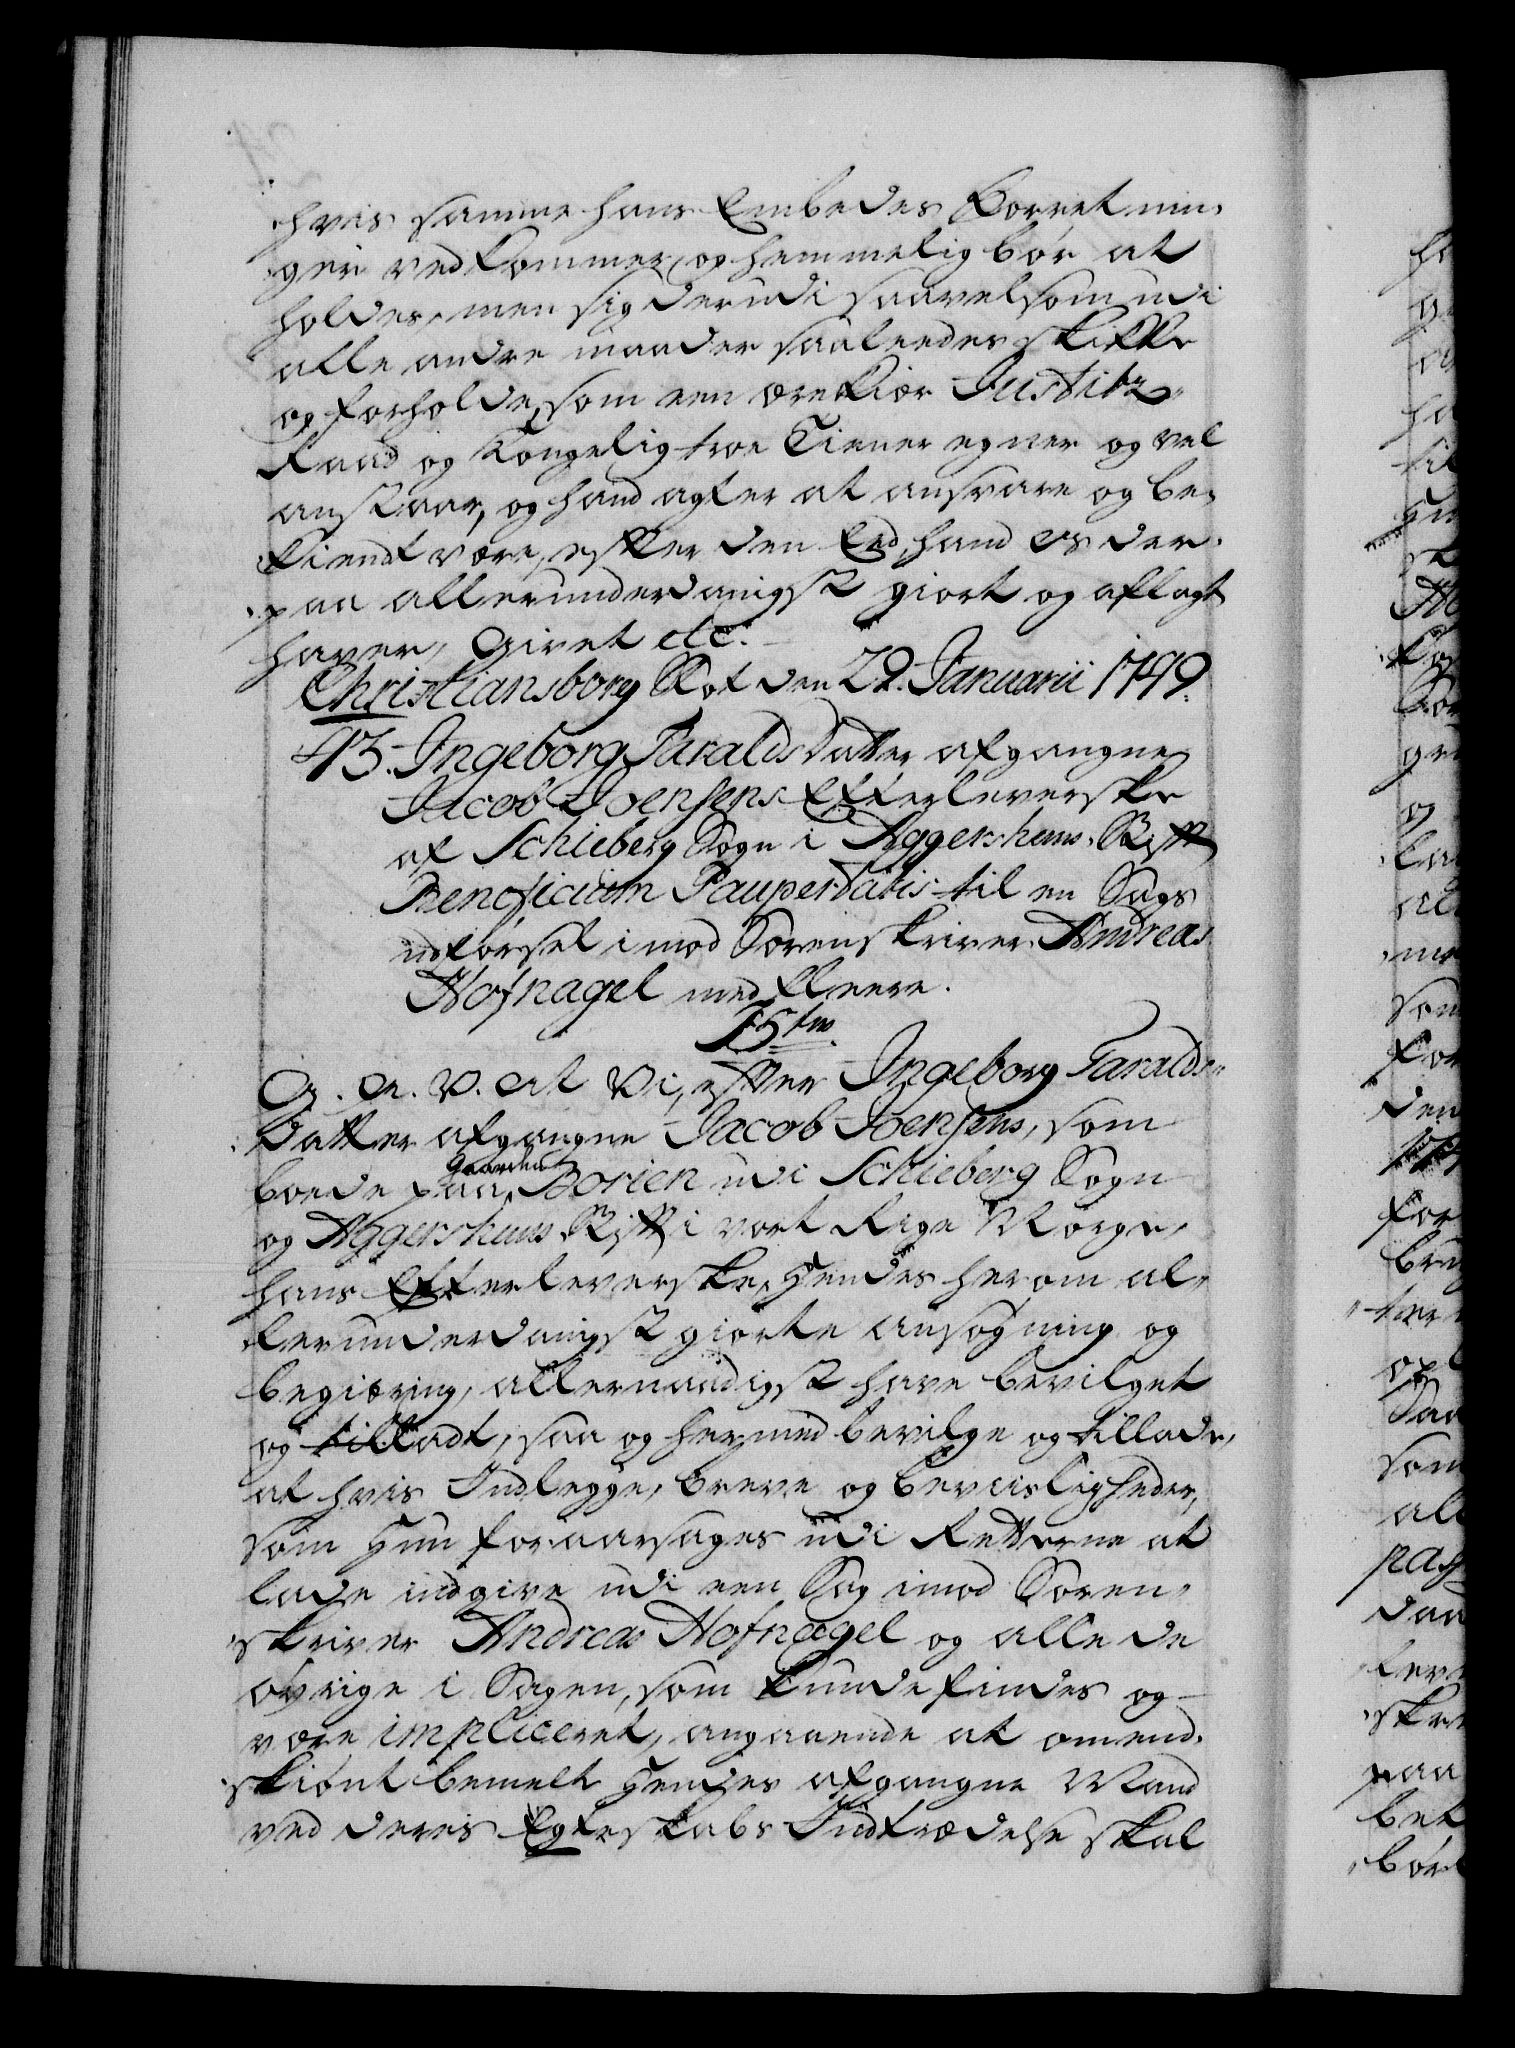 hvis samme hans Embedes Forretnin¬
ger vedkommer, og hemmelig bør at
holdes, men sig derudi saavelsom udi
alle andre maader saaleedes skikke
og forholde, som een ærekiær Justitz¬
Raad og Kongelig troe Tiener egner og vel
anstaar, og hand agter at ansvare og be¬
kiendt være, efter den Eed, hand Os der¬
paa allerunderdanigst giort og aflagt
haver, Givet etc.
Christiansborg Slot den 22. Januarii 1749.
43. Ingeborg Taralds Datter afgangne
Jacob Joensens Efterleverske
af Schieberg Sogn i Aggershuus Stift
Beneficium Paupertatis til en Sags
udførsel imod Sorenskriver Andreas
Hofnagel med fleere.
F5tus
G. A. V. at Vi, efter Ingeborg Taralds¬
Datter afgangne Jacob Joensens, som
boede paa gaarden Borien udi Schieberg Sogn
og Aggershuus Stift i vort Rige Norge,
hans Efterleverske, Hendes herom al¬
lerunderdanigst giorte ansøgning og
begiæring, allernaadigst have bevilget
og tilladt, saa og hermed bevilge og tillade,
at hvis Indlegge, breve og beviisligheder,
som Hun foraarsages udi Retterne at
lade indgive udi een Sag imod Soren¬
skriver Andreas Hofnagel og alle de
øvrige i Sagen, som kunde findes og
være impliceret, angaaende at omend¬
skiønt bemelt Hendes afgangne Mand
ved deres Egteskabs Indtrædelse skal